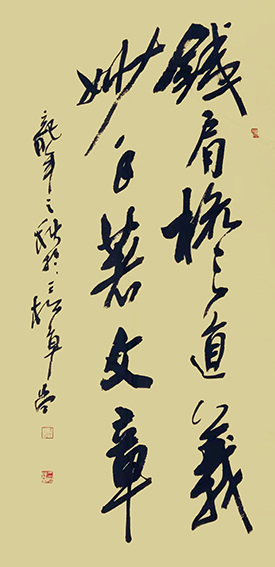 鐵肩擔道義
妙手著文章
龍年之秋於三松草堂